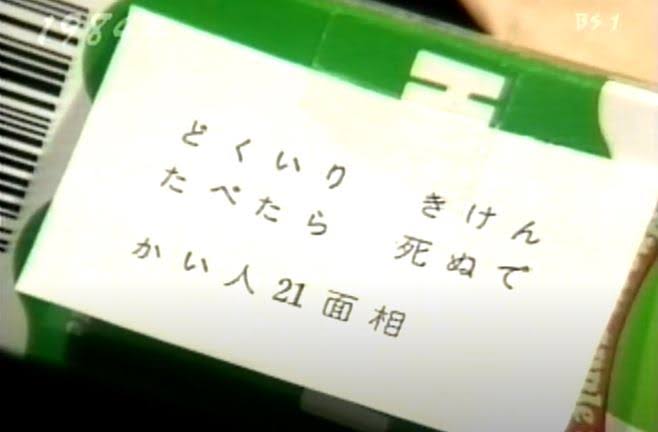 1984年
BS1
どくいり　きけん
たべたら　死ぬで
かい人21面相